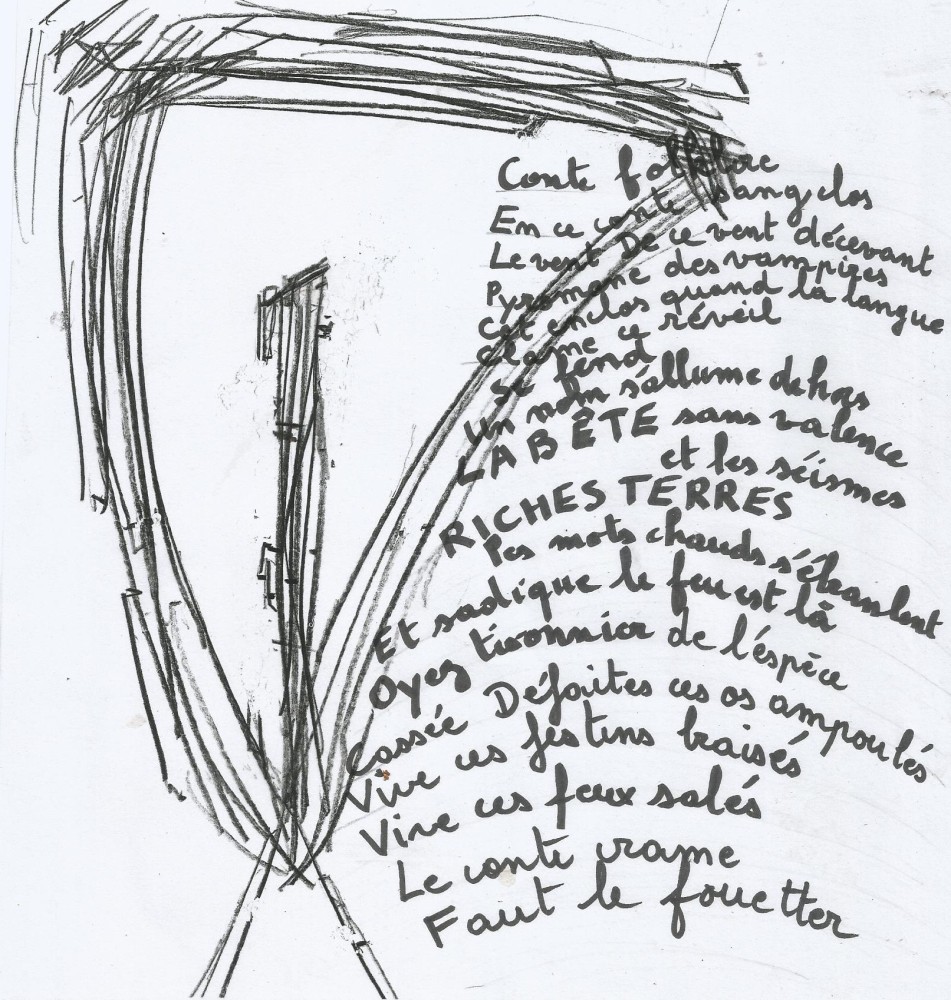 Conte folklore
En ce conte sang clos
Le vent De ce vent décevant
Pyromane des vampires
Cet enclos quand la langue
clame ce réveil
se fend
Un nom s'allume dehors
LA BÊTE sans valence
et les séismes
RICHES TERRES
les mots chauds s'ébranlent
Et sadique le feu est là
Oyez tisonnier de l'éspèce
cassée Défaites ces os ampoulés
Vive ces festins braisés
Vive ces feux salés
Le conte crame
Faut le fouetter